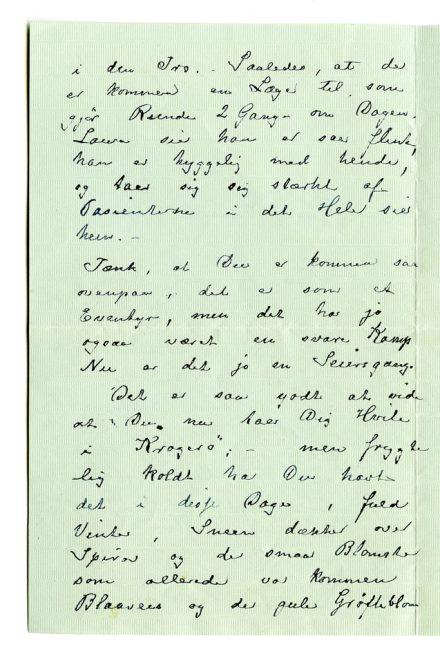 i den Tro. - Saaledes, at de
er kommen en Læge til, som
gjør Runde 2 Gang om Dagen.
Lawra sier han er saa flink,
han er hyggelig med hende,
og taer sig sig stærkt af
Pasienterne i det Hele sier
hun. -
Tænk, at Du er kommen saa
ovenpaa, det er som et
Eventyr, men det har jo
ogsaa været en svare Kamp
Nu er det jo en Seiersgang.
Det er saa godt at vide
at Du nu taer Dig Hvile
i "Kragerø", - men frygte
lig koldt har Du havt
det i disse Dage, fuld
Vinter, Sneen dækker over
Spirer og de smaa Blomster
som allerede var kommen
Blaaveis og de gule Grøfteblom